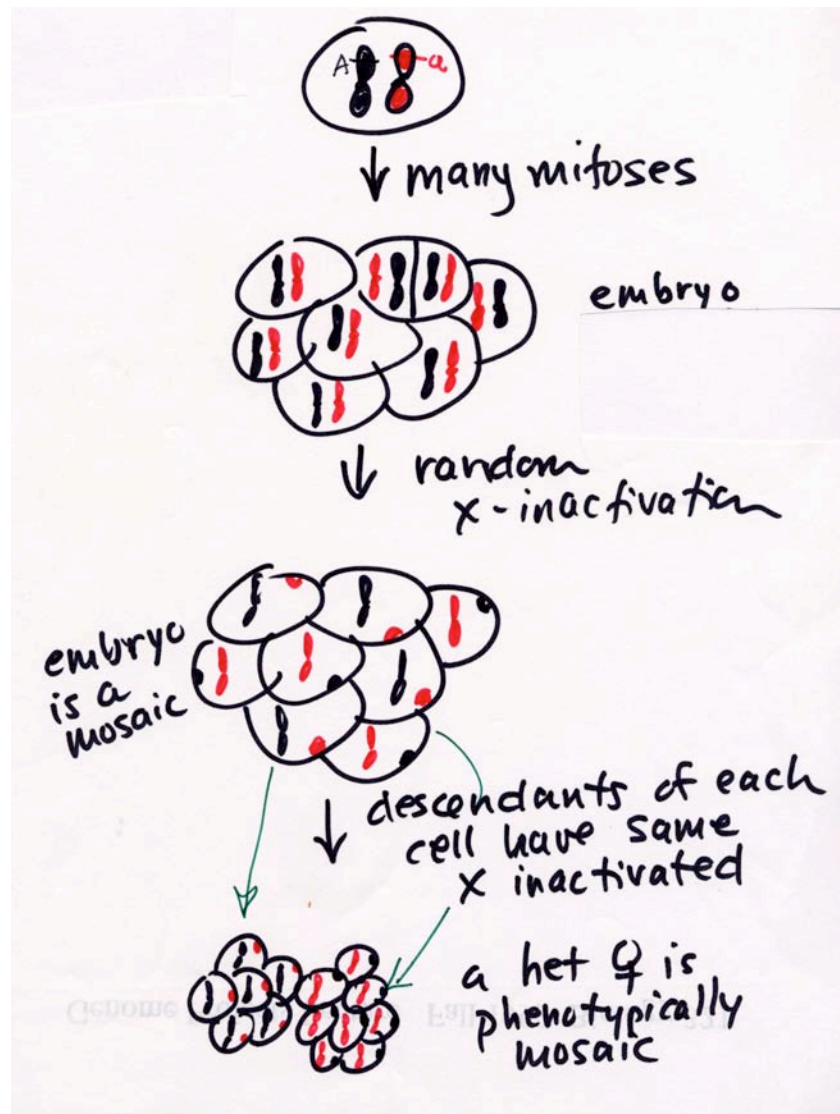 A a
many mitoses
embryo
random
x-inactivation
embryo
is a
mosaic
descendants of each
cell have same
x inactivated
a het ♀ is
phenotypically
mosaic
Genome
Fall